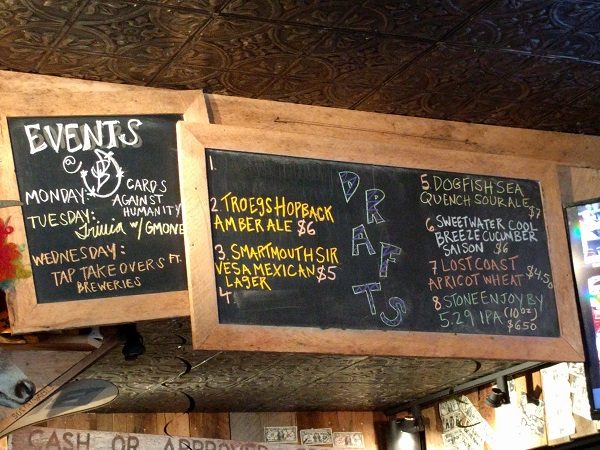 EVENTS
@
MONDAY: CARDS
AGAINST
HUMANITY
TUESDAY:
Trivia w/ GMONE
WEDNESDAY:
TAP TAKEOVERS FT.
BREWERIES
DRAFTS
1.
2 TROEGS HOPBACK
AMBER ALE $6
3. SMARTMOUTH SIR
VESA MEXICAN $5
LAGER
4
5 DOGFISH SEA
QUENCH SOUR ALE $7
6 SWEETWATER COOL
BREEZE CUCUMBER
SAISON $6
7 LOST COAST
APRICOT WHEAT $4.50
8 STONE ENJOY BY
5.29 IPA (10 oz)
$6.50
CASH OR APPROVED